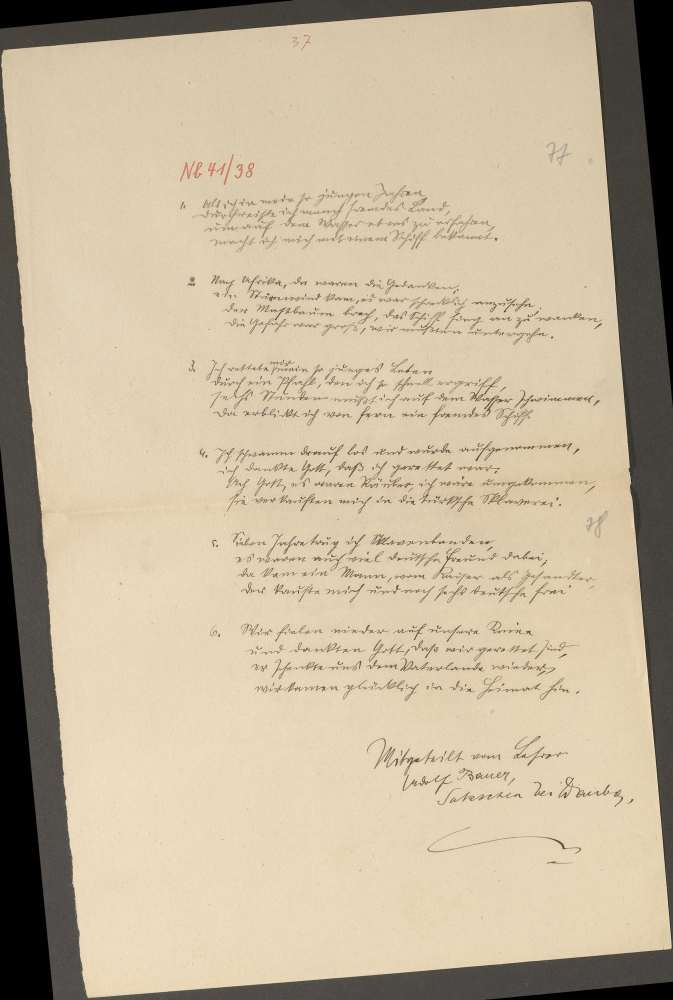 37
77
NB 41/38
1. Als ich in meine so jungen Jahren
durchreiste ich manch fremdes Land,
um auf dem Wasser etwas zu erfahren,
macht ich mich mit einem Schiff bekannt.
2. Nach Afrika, da waren die Gedanken,
ein Sturmwind kam, es war schrecklich anzusehn,
der Mastbaum brach, das Schiff fing an zu wanken,
die Gefahr war groß, wir mußten untergehn.
3. Ich rettete mir mein so junges Leben
durch ein Pfahl, den ich so schnell ergriff,
sechs Stunden mußt ich auf dem Wasser schwimmen,
da erblickt ich von fern ein fremdes Schiff.
4. Ich schwamm drauf los und wurde aufgenommen,
ich dankte Gott, daß ich gerettet war,
Ach Gott, es waren Räuber, ich wäre umgekommen,
sie verkauften mich in die türksche Sklaverei.
5. Sieben Jahre trug ich Sklavenbanden,
es waren auch viel deutsche Freund dabei,
da kam ein Mann, vom Kaiser als Gesandter,
der kaufte mich und noch sechs deutsche frei
78
6. Wir fielen nieder auf unsere Kniee
und dankten Gott, daß wir gerettet sind,
er schenkte uns dem Vaterlande wieder,
wir kamen glücklich in die Heimat hin.
Mitgeteilt vom Lehrer
Adolf Bauer,
bei Dauba,